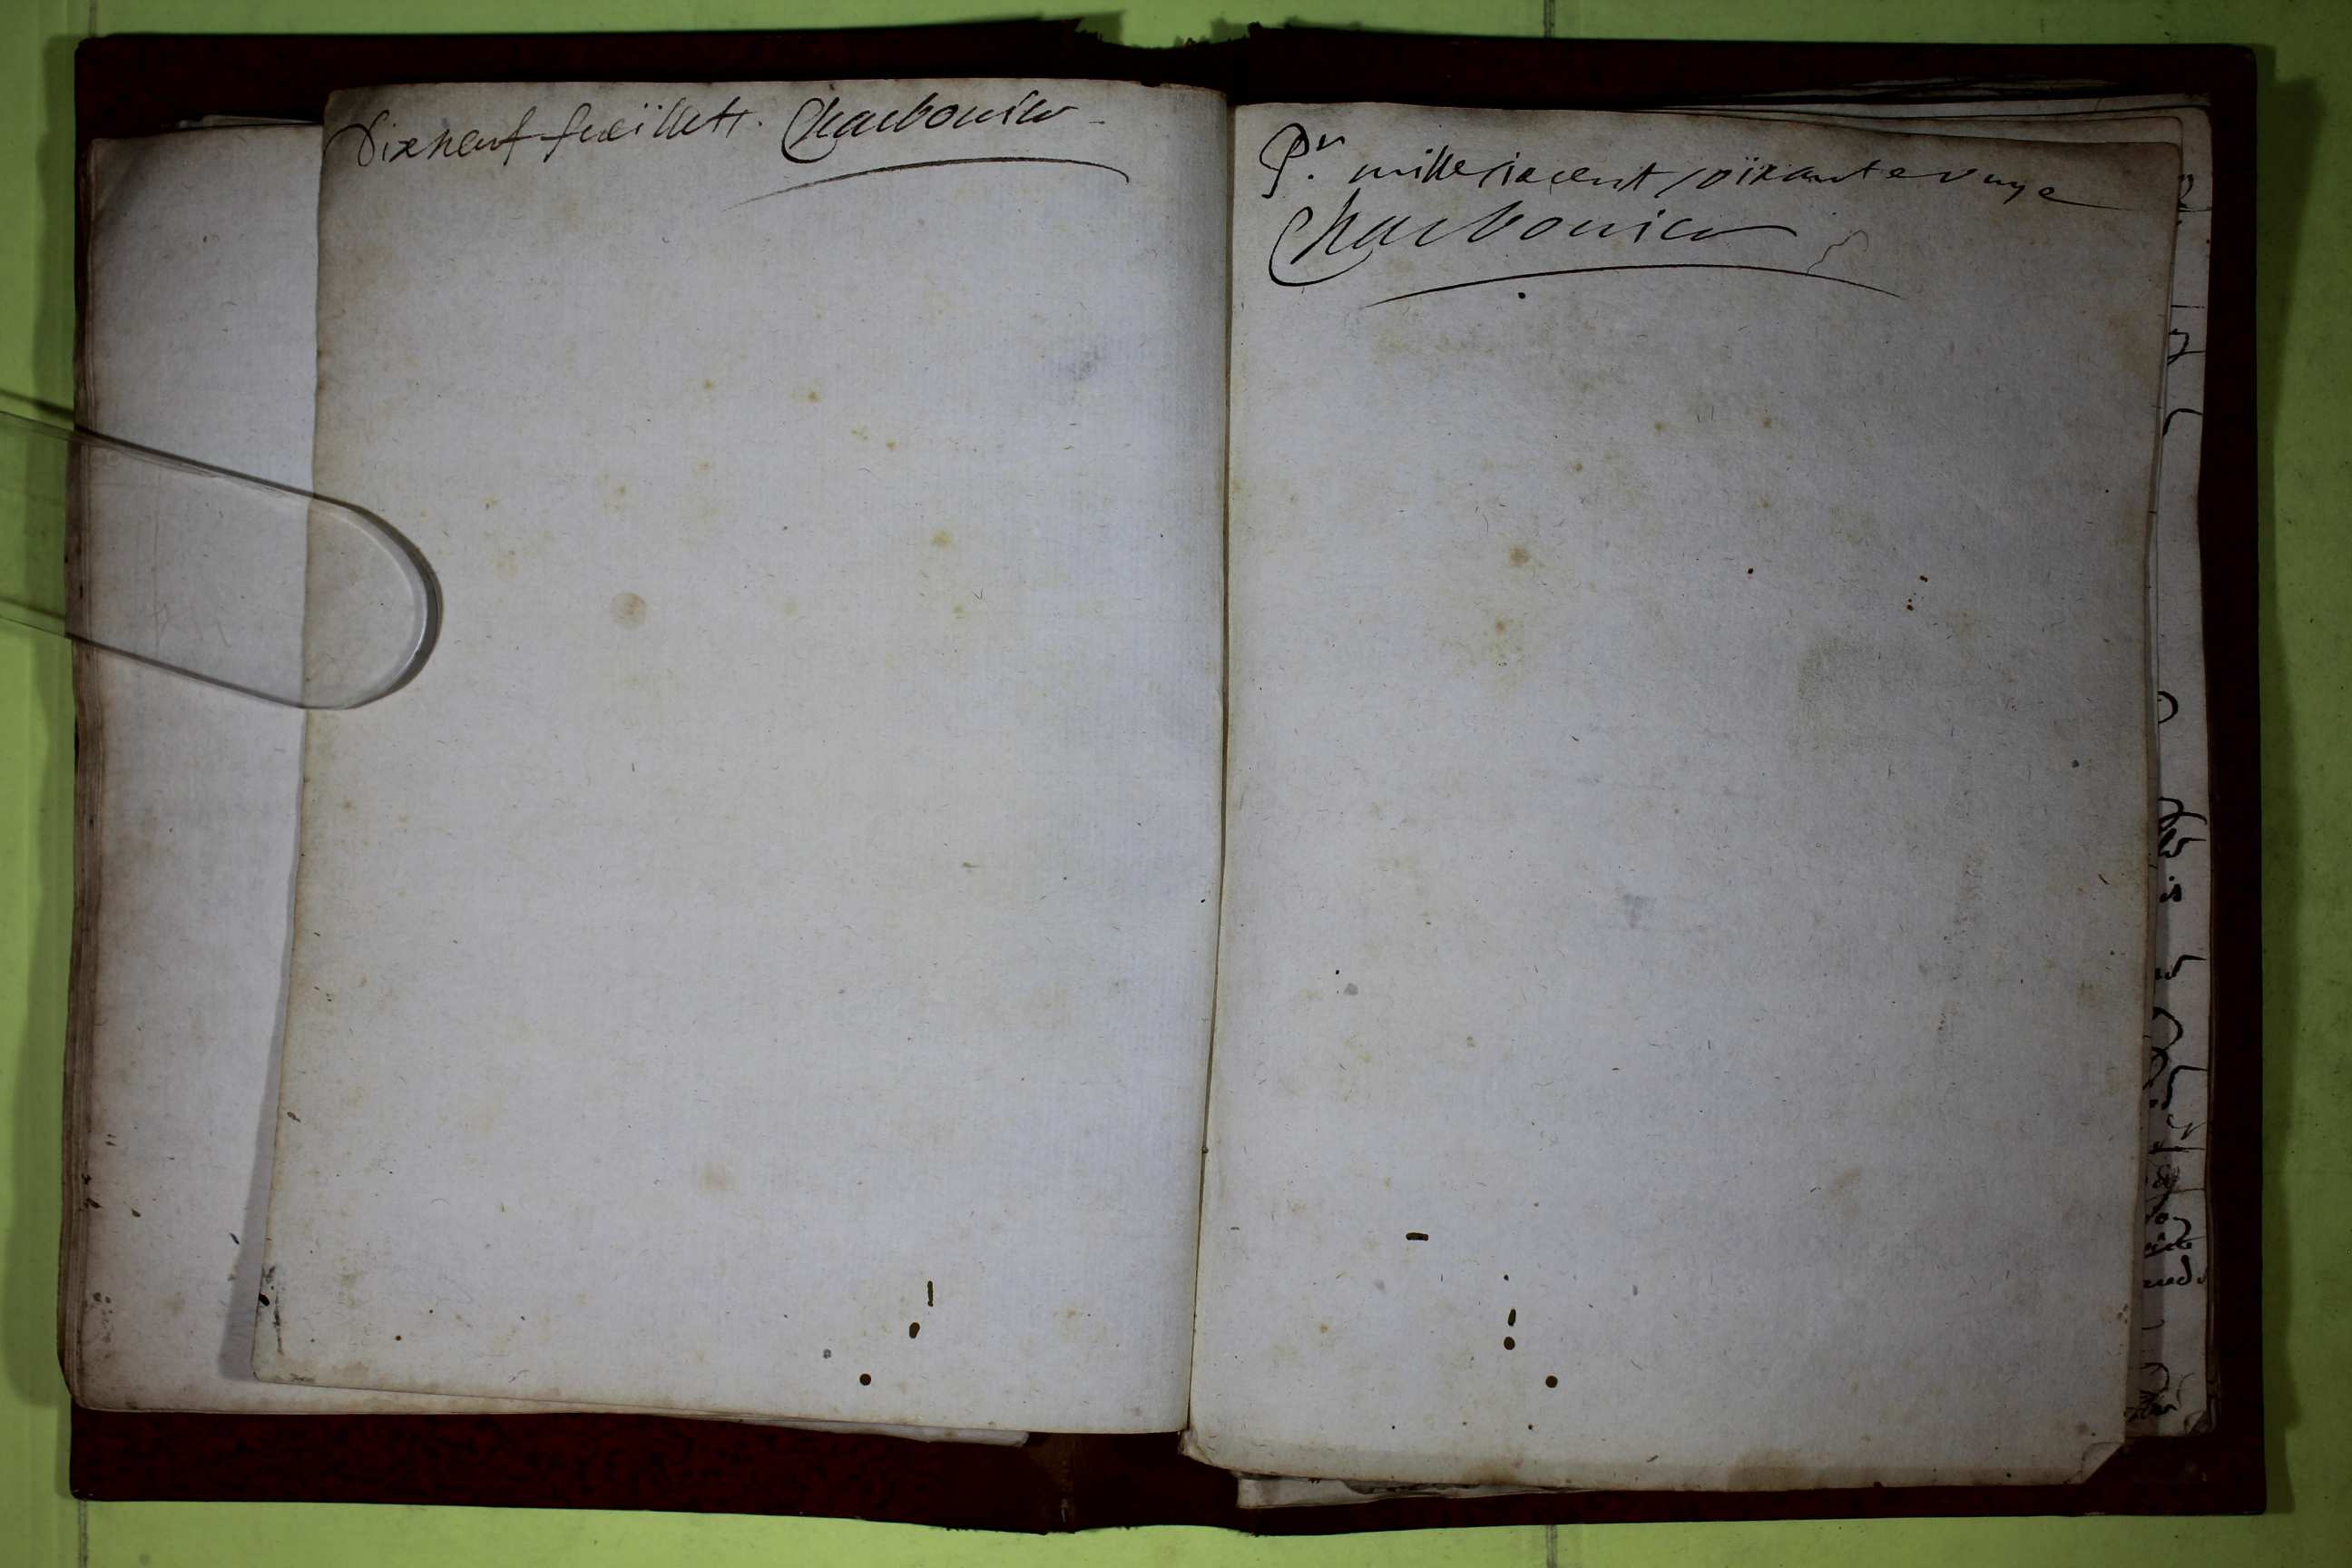 Dixneuf feüillets. Charbonier
Pr. mille six cent soixante unze
Charbonier